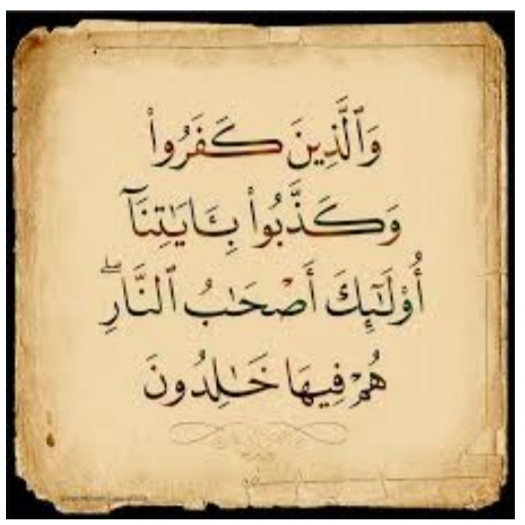 وَٱلَّذِينَ كَفَرُوا۟
وَكَذَّبُوا۟ بِـَٔايَـٰتِنَآ
أُو۟لَـٰٓئِكَ أَصْحَـٰبُ ٱلنَّارِ ۖ
هُمْ فِيهَا خَـٰلِدُونَ